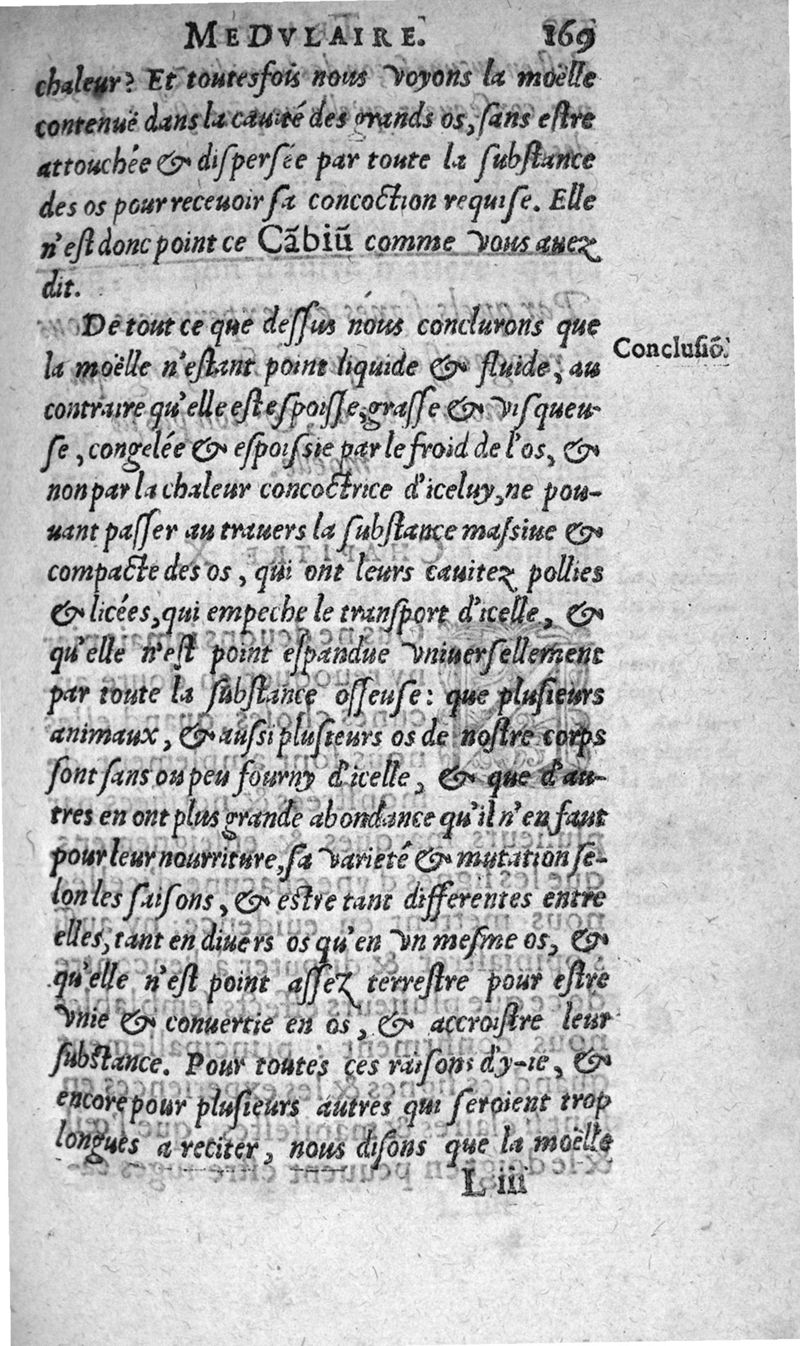 MEDVLAIRE. 169
chaleur? Et toutesfois nous voyons la moëlle
contenuë dans la cauité des grands os, sans estre
attouchée & dispersée par toute la substance
des os pour receuoir sa concoction requise. Elle
n'est donc point ce Cãbiũ comme vous auez
dit.
De tout ce que dessus nous conclurons que
Conclusiõ.
la moëlle n'estant point liquide & fluide, au
contraire qu'elle est espoisse, grasse & visqueu-
se, congelée & espoissie par le froid de l'os, &
non par la chaleur concoctrice d'iceluy, ne pou-
uant passer au trauers la substance massiue &
compacte des os, qui ont leurs cauitez pollies
& licées, qui empeche le transport d'icelle, &
qu'elle n'est point espandue vniuersellement
par toute la substance osseuse: que plusieurs
animaux, & aussi plusieurs os de nostre corps
sont sans ou peu fourny d'icelle, & que d'au-
tres en ont plus grande abondance qu'il n'en faut
pour leur nourriture, sa varieté & mutation se-
lon les saisons, & estre tant differentes entre
elles, tant en diuers os qu'en vn mesme os, &
qu'elle n'est point assez terrestre pour estre
vnie & conuertie en os, & accroistre leur
substance. Pour toutes ces raisons d'y-ie, &
encore pour plusieurs autres qui seroient trop
longues a reciter, nous disons que la moëlle
L iii